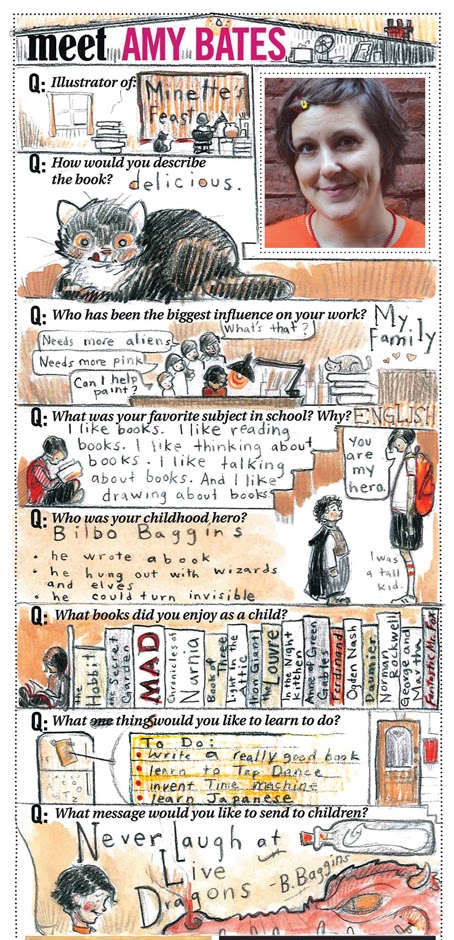 meet AMY BATES
Q: Illustrator of:
Minette's
Feast
Q: How would you describe
the book?
delicious.
Q: Who has been the biggest influence on your work?
My
Family
What's that?
Needs more aliens
Needs more pink
Can I help
paint?
Q: What was your favorite subject in school? Why?
ENGLISH
I like books. I like reading
books. I like thinking about
books. I like talking
about books. And I like
drawing about books.
You
are
my
hero.
Q: Who was your childhood hero?
Bilbo Baggins
• he wrote a book
• he hung out with wizards
and elves
• he could turn invisible
I was
a tall
kid.
Q: What books did you enjoy as a child?
the Hobbit
the Secret Garden
MAD
Chronicles of Narnia
Book of Three
Light In the Attic
thon Giant!
the Louvre
In the Night Kitchen
Anne of Green Gables
Ferdinand
Ogden Nash
Daumier
Norman Rockwell
George and Martha
Fantastic Mr. Fox
Q: What one thing would you like to learn to do?
To Do:
• write a really good book
• learn to Tap Dance
• invent Time machine
• learn Japanese
Q: What message would you like to send to children?
Never Laugh at
Live
Dragons -B. Baggins